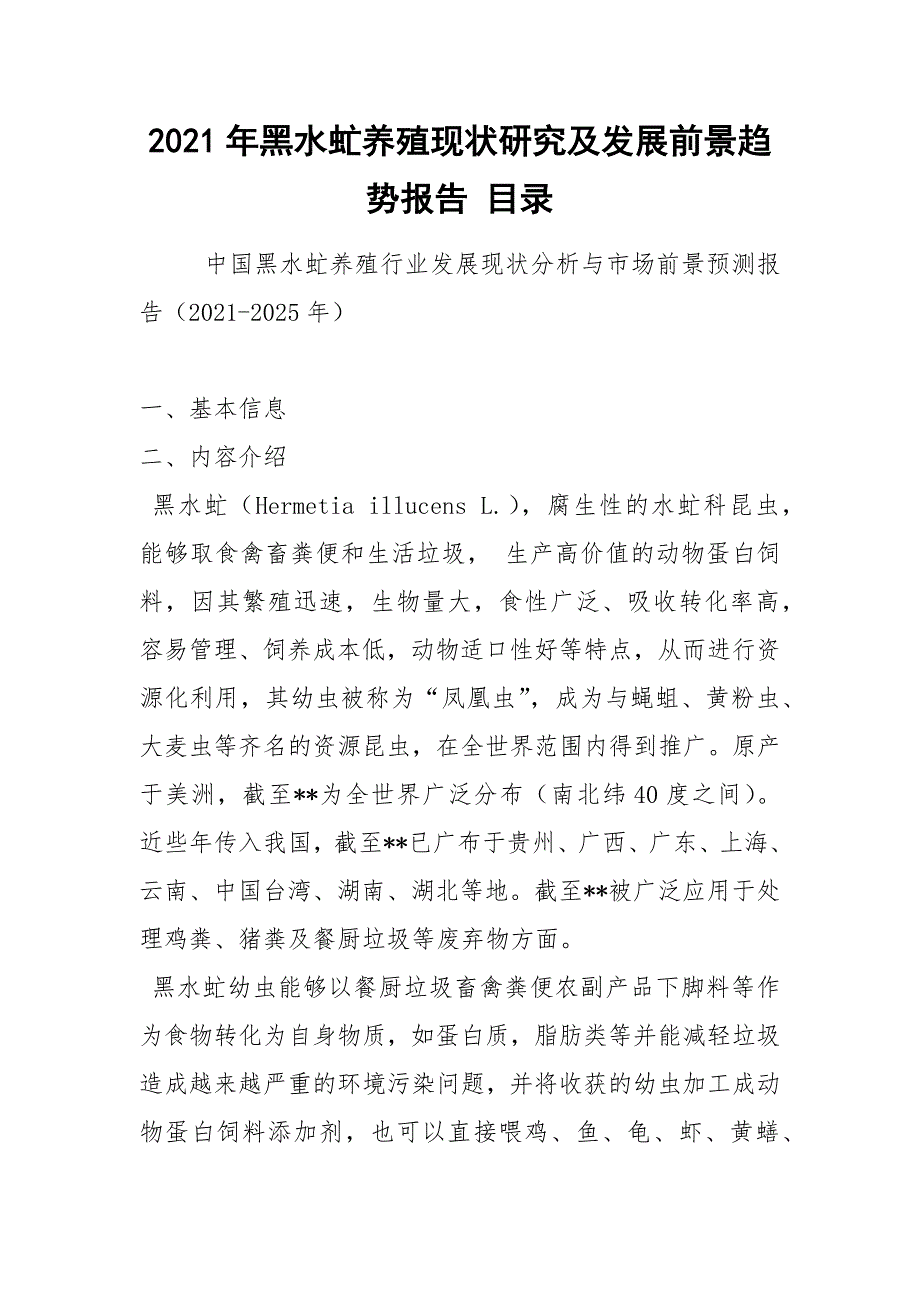 2021年黑水虻养殖现状研究及发展前景趋
势报告 目录
中国黑水虻养殖行业发展现状分析与市场前景预测报
告（2021-2025年）
一、基本信息
二、内容介绍
黑水虻（Hermetia illucens L.），腐生性的水虻科昆虫，
能够取食禽畜粪便和生活垃圾， 生产高价值的动物蛋白饲
料，因其繁殖迅速，生物量大，食性广泛、吸收转化率高，
容易管理、饲养成本低，动物适口性好等特点，从而进行资
源化利用，其幼虫被称为“凤凰虫”，成为与蝇蛆、黄粉虫、
大麦虫等齐名的资源昆虫，在全世界范围内得到推广。原产
于美洲，截至**为全世界广泛分布（南北纬40度之间）。
近些年传入我国，截至**已广布于贵州、广西、广东、上海、
云南、中国台湾、湖南、湖北等地。截至**被广泛应用于处
理鸡粪、猪粪及餐厨垃圾等废弃物方面。
黑水虻幼虫能够以餐厨垃圾畜禽粪便农副产品下脚料等作
为食物转化为自身物质，如蛋白质，脂肪类等并能减轻垃圾
造成越来越严重的环境污染问题，并将收获的幼虫加工成动
物蛋白饲料添加剂，也可以直接喂鸡、鱼、龟、虾、黄蟮、